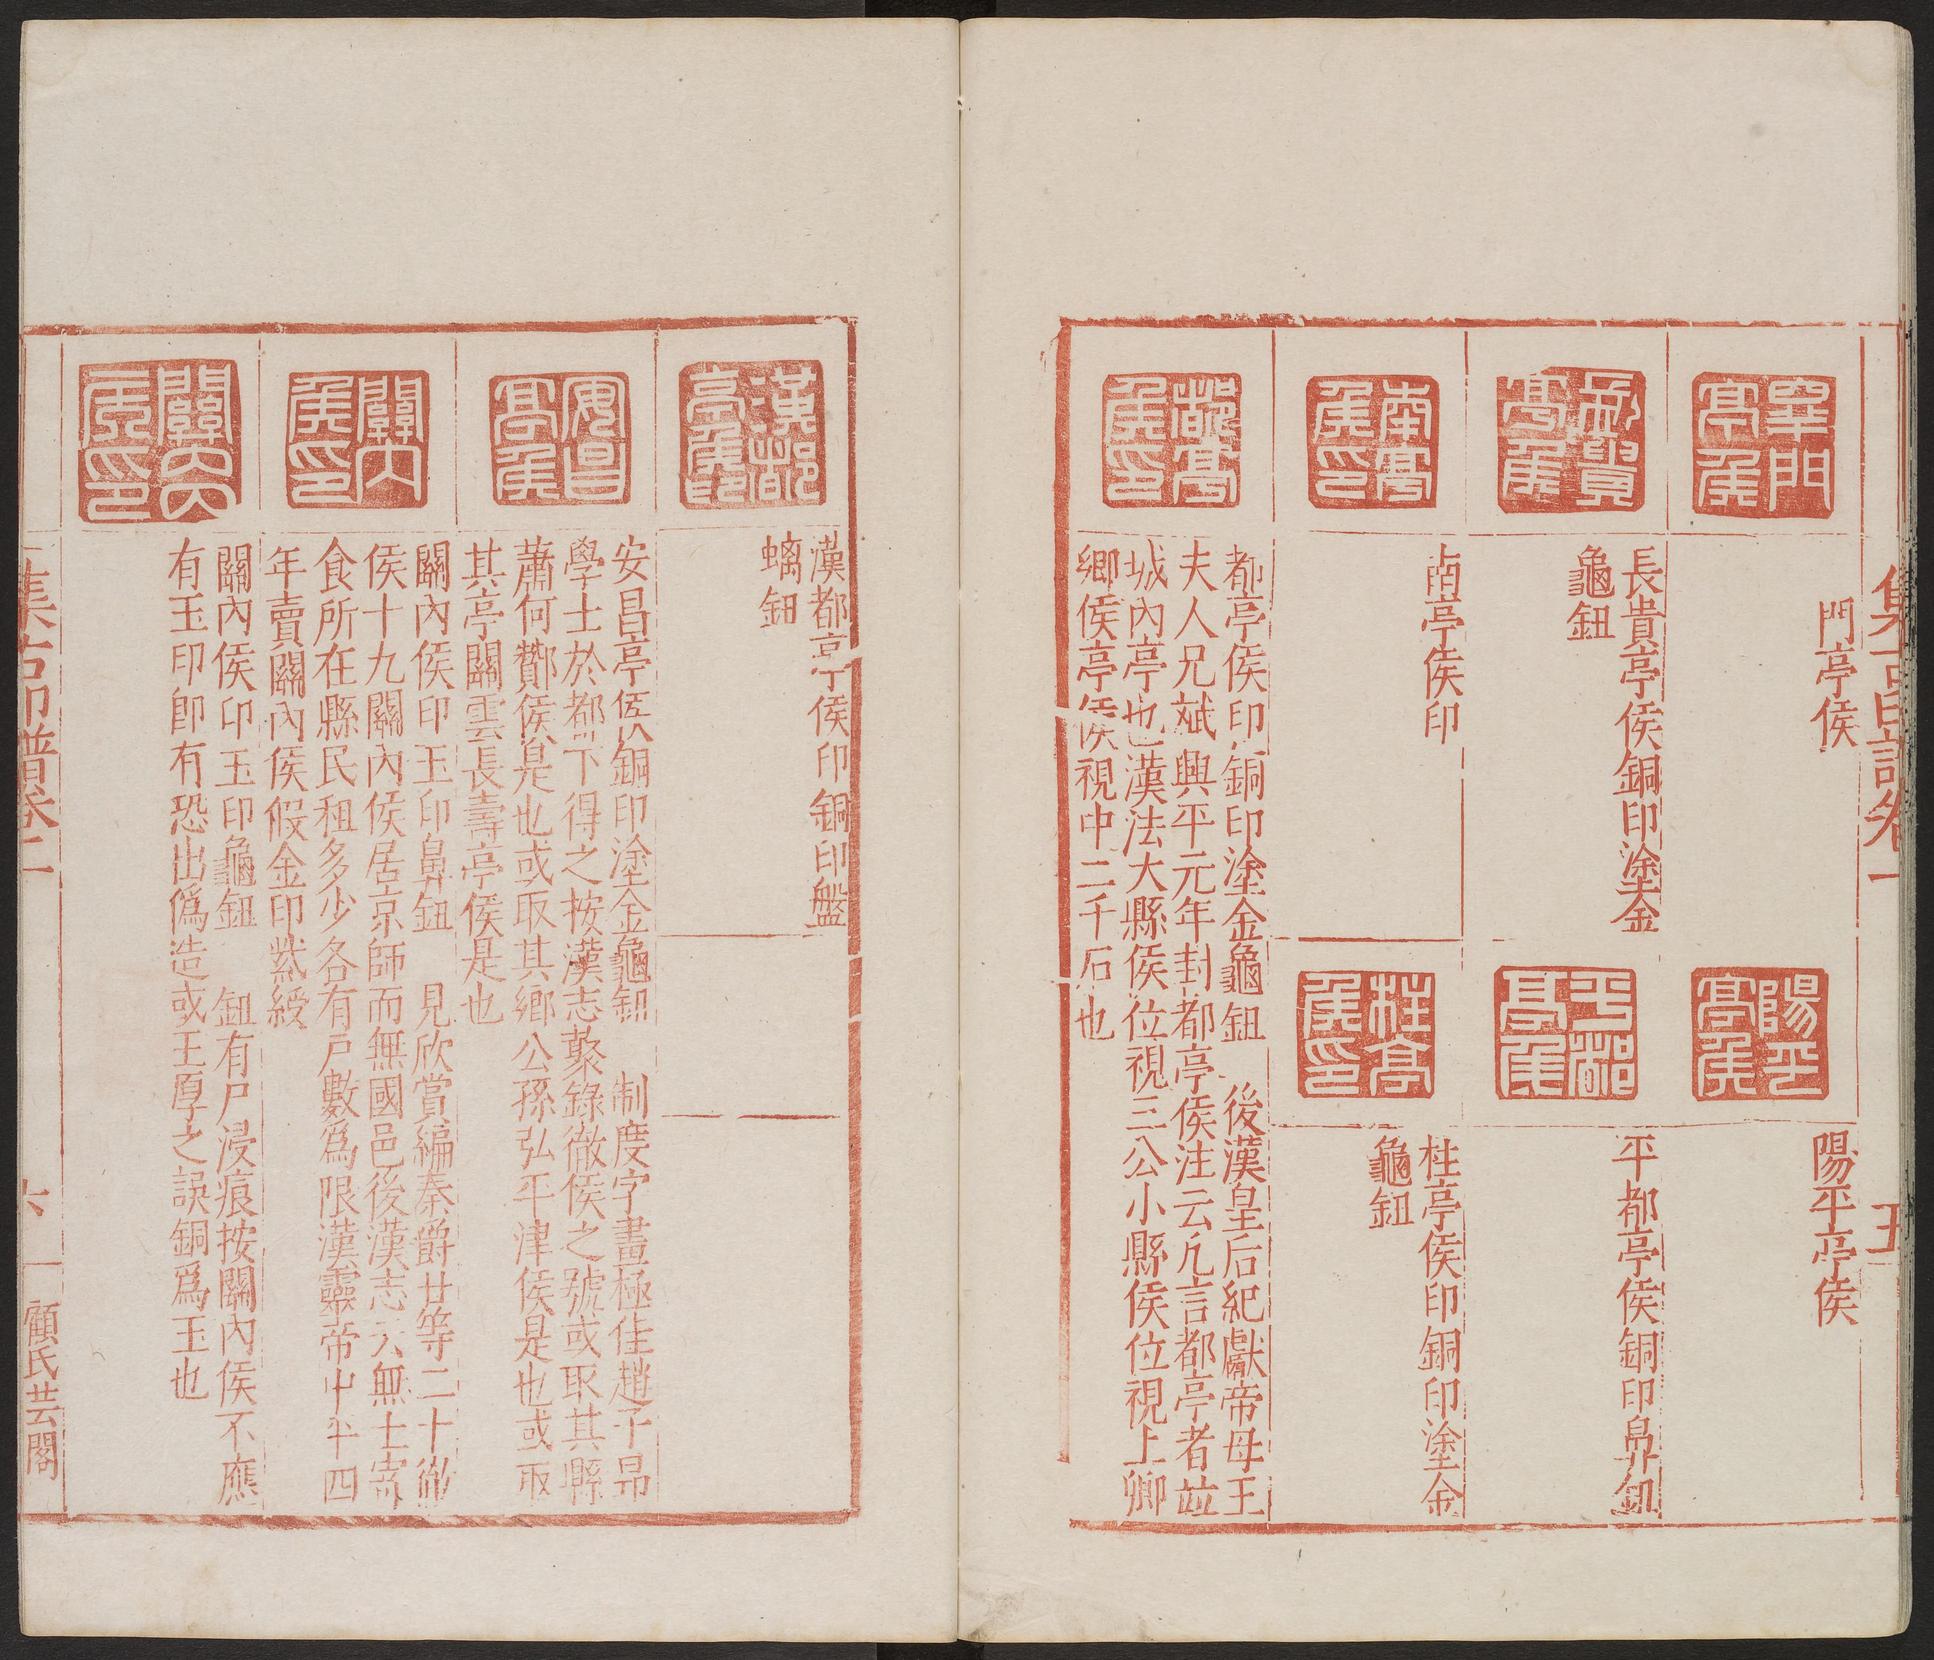 集古印譜卷一
五
門亭侯
陽平亭侯
長貴亭侯銅印塗金
龜鈕
平都亭侯銅印鼻鈕
南亭侯印
柱亭侯印銅印塗金
龜鈕
都亭侯印銅印塗金龜鈕 後漢皇后紀獻帝母王
夫人兄斌興平元年封都亭侯注云凡言都亭者並
城內亭也漢法大縣侯位視三公小縣侯位視上卿
鄉侯亭侯視中二千石也
漢都亭侯印銅印盤
螭鈕
安昌亭侯銅印塗金龜鈕 制度字畫極佳趙子昂
學士於都下得之按漢志蔡錄徹侯之號或取其縣
蕭何酇侯是也或取其鄉公孫弘平津侯是也或取
其亭關雲長壽亭侯是也
關內侯印玉印鼻鈕 見欣賞編秦爵廿等二十徹
侯十九關內侯居京師而無國邑後漢志云無土寄
食所在縣民租多少各有戶數為限漢靈帝中平四
年賣關內侯假金印紫綬
關內侯印玉印龜鈕 鈕有尸浸痕按關內侯不應
有玉印卽有恐出偽造或王厚之誤銅爲玉也
集古印譜卷二
六
顧氏芸閣